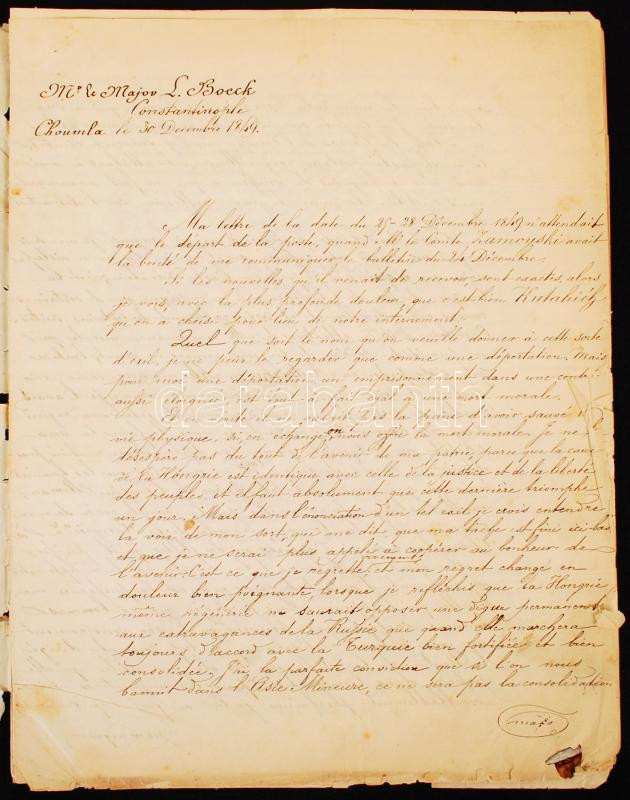 Mr le Major L. Boeck
Constantinople
Choumla le 30 Decembre 1849.
Ma lettre de la date du 25-28 Décembre 1849 n'attendait
que le départ de la poste, quand Mr le Comte Zamoyski avait
la bonté de me communiquer le bulletin du 21 Décembre.
Si les nouvelles qu'il venait de recevoir sont exactes, alors
je vois, avec la plus profonde douleur, que c'est bien Kutahiéh
qu'on a choisi pour lieu de notre internement.
Quel que soit le nom qu'on veuille donner à cette sorte
d'exil, je ne puis le regarder que comme une déportation. Mais
pour moi une déportation, un emprisonnement dans une contrée
aussi éloignée, est tout à fait égale à une mort morale.
la peine d'avoir sauvé la
vie physique, si en échange on nous offre la mort morale. Je ne
désespère pas du tout de l'avenir de ma patrie, parce que la cause
de la Hongrie est identique avec celle de la justice et de la liberté
des peuples, et il faut absolument que cette dernière triomphe
un jour. Mais dans l'énonciation d'un tel exil je crois entendre
la voix de mon sort, que me dit que ma tâche est finie ici-bas
et que je ne serai plus appelé à coopérer au bonheur de
l'avenir. C'est ce que je regrette, et mon regret change en
douleur bien poignante, lorsque je réfléchis que la Hongrie
même régénérée ne saurait opposer une digue permanente
aux extravagances de la Russie que quand elle marchera
toujours d'accord avec la Turquie bien fortifiée et bien
consolidée. J'ai la parfaite conviction que si l'on nous
bannit dans l'Asie Mineure, ce ne sera pas la consolidation
darabanth